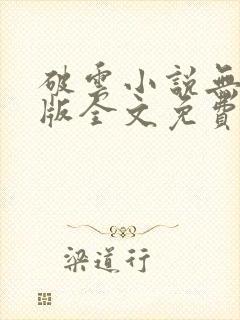 破雲小說無
版全文免費
梁道行